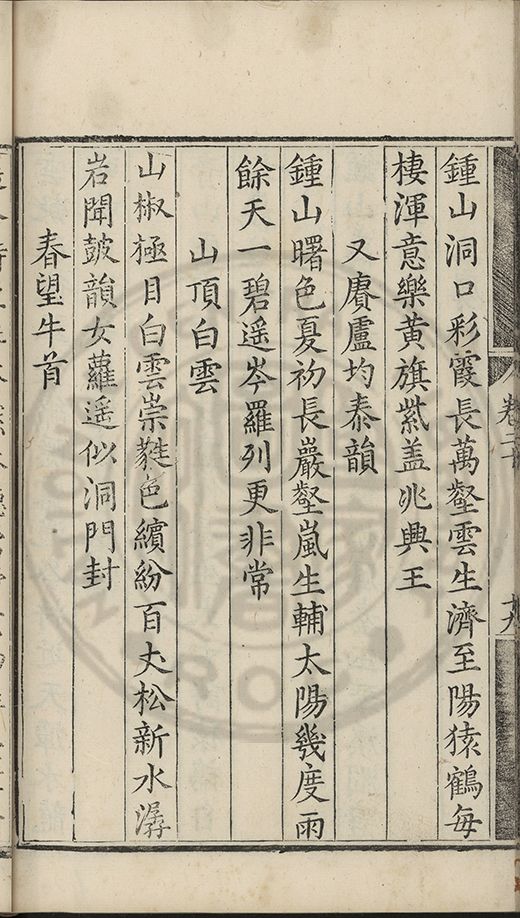 鍾山洞口彩霞長萬壑雲生濟至陽猿鶴每
棲渾意樂黃旗紫盖兆興王
又賡盧均泰韻
鍾山曙色夏初長巖壑嵐生輔太陽幾度雨
餘天一碧遥岑羅列更非常
山頂白雲
山椒極目白雲崇蕤色繽紛百丈松新水潺
岩聞皷韻女蘿遥似洞門封
春望牛首
卷二